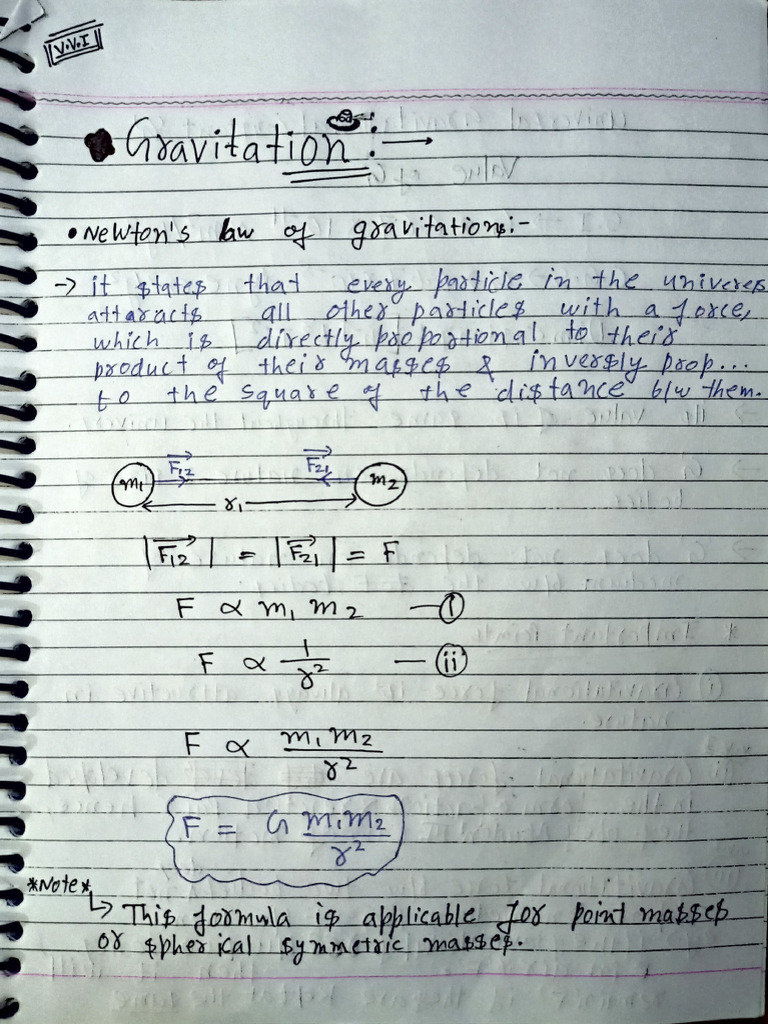 V.V.I
• Gravitation :→
• Newton's law of gravitations:-
→ it states that every particle in the univeres
attaracts all other particles with a force,
which is directly proportional to their
product of their masses & inversly prop...
to the square of the distance b/w them.
m₁ F₁₂ F₂₁ m₂
r₁
|F₁₂| = |F₂₁| = F
F ∝ m₁ m₂ —(i)
F ∝ 1/r² —(ii)
F ∝ m₁ m₂/r²
F = G m₁m₂/r²
*Note*
↳ This formula is applicable for point masses
or spherical symmetric masses.